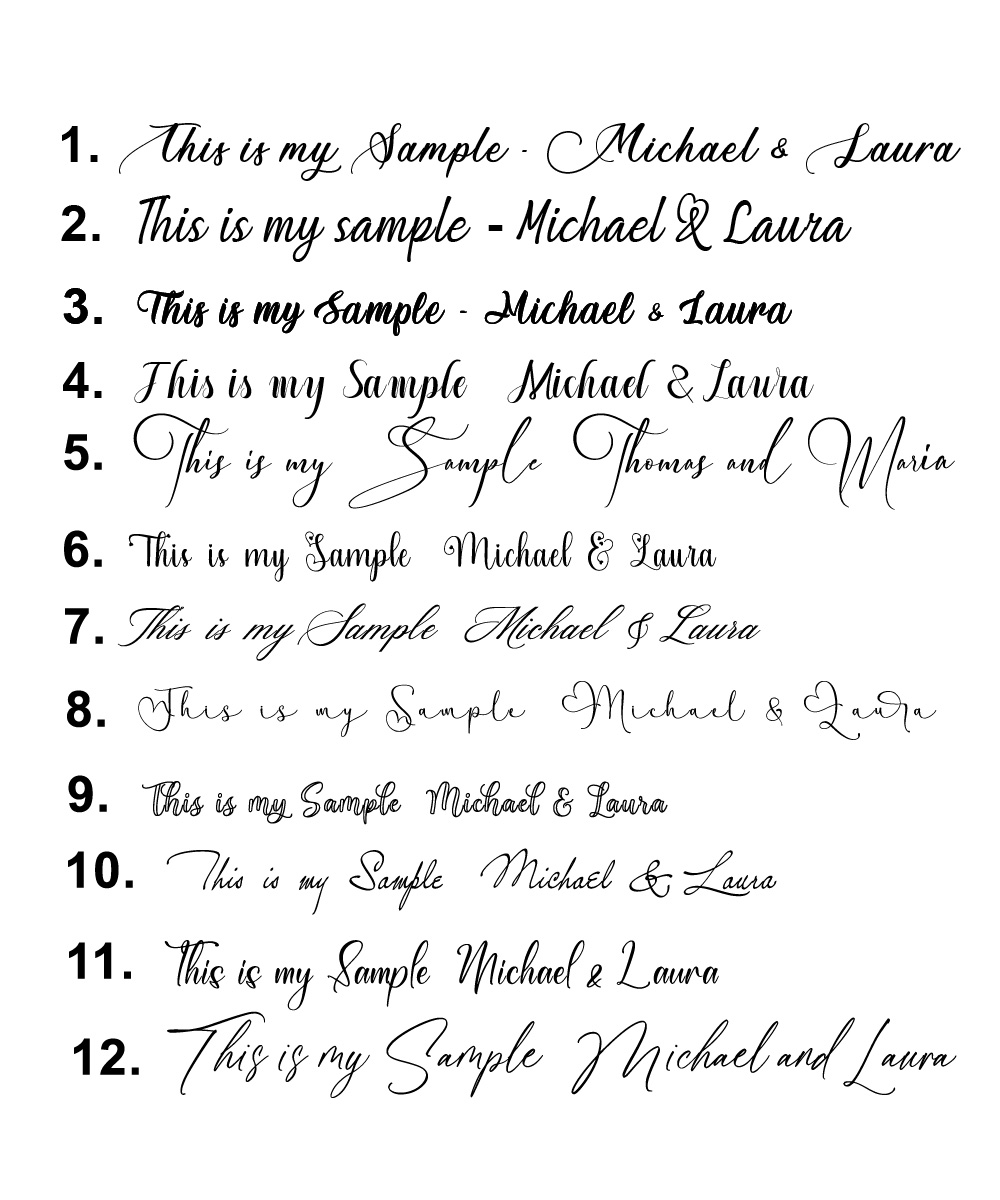 1. This is my Sample - Michael & Laura
2. This is my sample - Michael & Laura
3. This is my Sample - Michael & Laura
4. This is my Sample Michael & Laura
5. This is my Sample Thomas and Maria
6. This is my Sample Michael & Laura
7. This is my Sample Michael & Laura
8. This is my Sample Michael & Laura
9. This is my Sample Michael & Laura
10. This is my Sample Michael & Laura
11. This is my Sample Michael & Laura
12. This is my Sample Michael and Laura